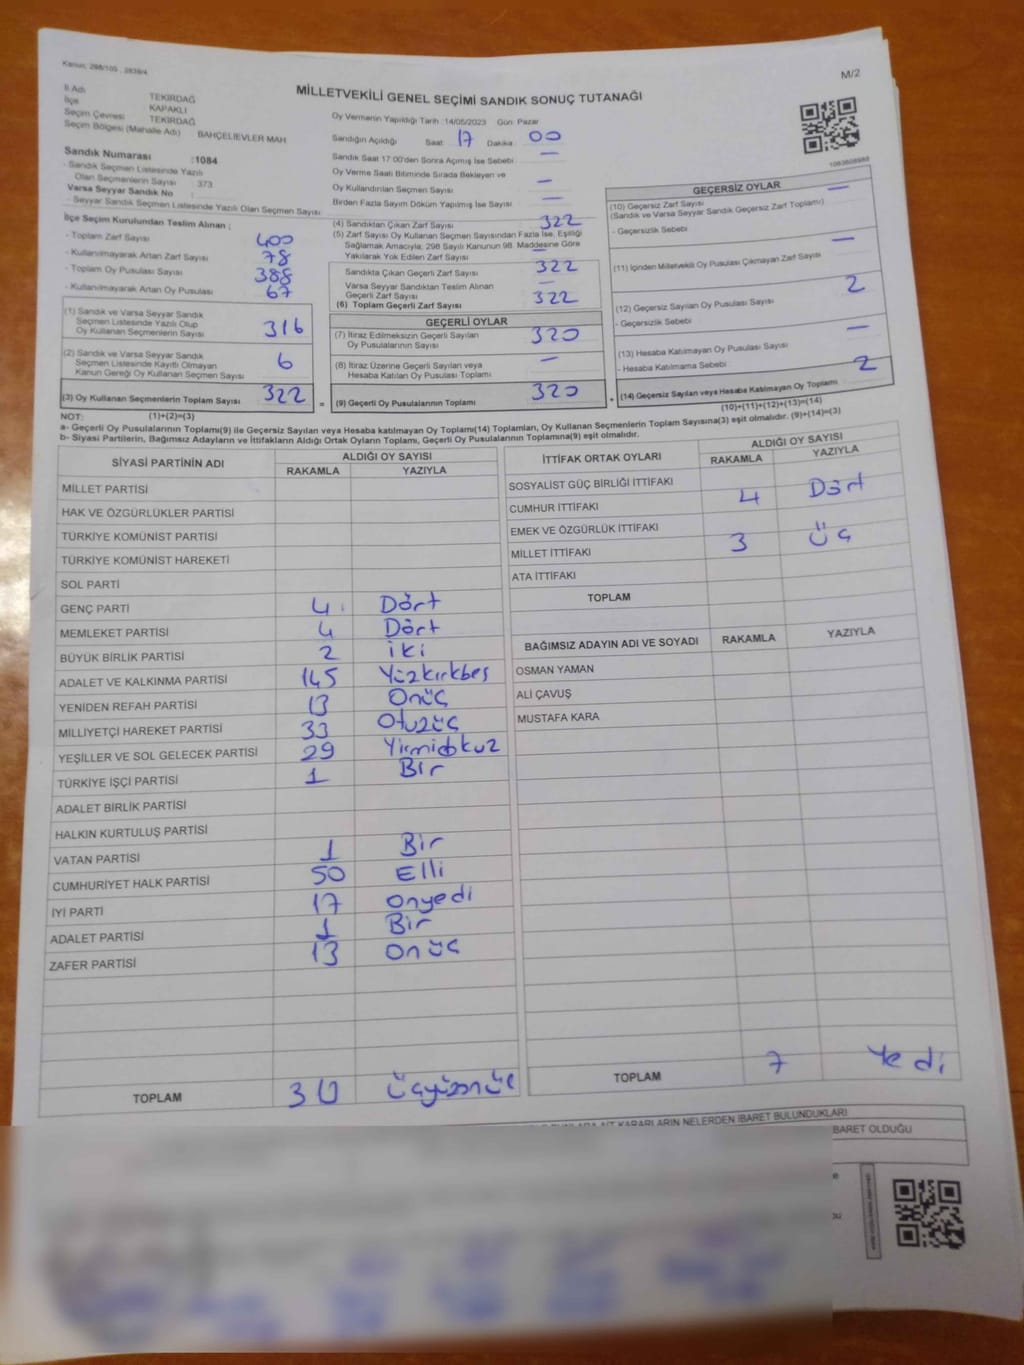 Kanun: 298/105 , 2839/4
M/2
MİLLETVEKİLİ GENEL SEÇİMİ SANDIK SONUÇ TUTANAĞI
İl Adı TEKİRDAĞ
İlçe KAPAKLI
Seçim Çevresi TEKİRDAĞ
Seçim Bölgesi (Mahalle Adı) BAHÇELİEVLER MAH
Sandık Numarası :1084
- Sandık Seçmen Listesinde Yazılı
Olan Seçmenlerin Sayısı 373
Varsa Seyyar Sandık No :
- Seyyar Sandık Listesinde Yazılı Olan Seçmen Sayısı
Oy Vermenin Yapıldığı Tarih :14/05/2023 Gün: Pazar
Sandığın Açıldığı Saat: 17 Dakika: 00
Sandık Saat 17:00'den Sonra Açımış İse Sebebi —
Oy Verme Saati Bitiminde Sırada Bekleyen ve
Oy Kullandırılan Seçmen Sayısı —
Birden Fazla Sayım Döküm Yapılmış İse Sayısı —
1083608988
İlçe Seçim Kurulundan Teslim Alınan ;
- Toplam Zarf Sayısı 400
- Kullanılmayarak Artan Zarf Sayısı 78
- Toplam Oy Pusulası Sayısı 388
- Kullanılmayarak Artan Oy Pusulası 67
(1) Sandık ve Varsa Seyyar Sandık
Seçmen Listesinde Yazılı Olup
Oy Kullanan Seçmenlerin Sayısı 316
(2) Sandık ve Varsa Seyyar Sandık
Seçmen Listesinde Kayıtlı Olmayan
Kanun Gereği Oy Kullanan Seçmen Sayısı 6
(3) Oy Kullanan Seçmenlerin Toplam Sayısı 322 =
(4) Sandıktan Çıkan Zarf Sayısı 322
(5) Zarf Sayısı Oy Kullanan Seçmen Sayısından Fazla İse, Eşitliği
Sağlamak Amacıyla, 298 Sayılı Kanunun 98. Maddesine Göre
Yakılarak Yok Edilen Zarf Sayısı —
Sandıkta Çıkan Geçerli Zarf Sayısı 322
Varsa Seyyar Sandıktan Teslim Alınan
Geçerli Zarf Sayısı —
(6) Toplam Geçerli Zarf Sayısı 322
GEÇERLİ OYLAR
(7) İtiraz Edilmeksizin Geçerli Sayılan
Oy Pusulalarının Sayısı 320
(8) İtiraz Üzerine Geçerli Sayılan veya
Hesaba Katılan Oy Pusulası Toplamı —
(9) Geçerli Oy Pusulalarının Toplamı 320 +
GEÇERSİZ OYLAR
(10) Geçersiz Zarf Sayısı —
(Sandık ve Varsa Seyyar Sandık Geçersiz Zarf Toplamı)
- Geçersizlik Sebebi
(11) İçinden Milletvekili Oy Pusulası Çıkmayan Zarf Sayısı —
(12) Geçersiz Sayılan Oy Pusulası Sayısı 2
- Geçersizlik Sebebi
(13) Hesaba Katılmayan Oy Pusulası Sayısı —
- Hesaba Katılmama Sebebi
(14) Geçersiz Sayılan veya Hesaba Katılmayan Oy Toplamı 2
NOT: (1)+(2)=(3) (10)+(11)+(12)+(13)=(14)
a- Geçerli Oy Pusulalarının Toplamı(9) ile Geçersiz Sayılan veya Hesaba katılmayan Oy Toplamı(14) Toplamları, Oy Kullanan Seçmenlerin Toplam Sayısına(3) eşit olmalıdır. (9)+(14)=(3)
b- Siyasi Partilerin, Bağımsız Adayların ve İttifakların Aldığı Ortak Oyların Toplamı, Geçerli Oy Pusulalarının Toplamına(9) eşit olmalıdır.
SİYASİ PARTİNİN ADI ALDIĞI OY SAYISI
RAKAMLA YAZIYLA
MİLLET PARTİSİ
HAK VE ÖZGÜRLÜKLER PARTİSİ
TÜRKİYE KOMÜNİST PARTİSİ
TÜRKİYE KOMÜNİST HAREKETİ
SOL PARTİ
GENÇ PARTİ 4 Dört
MEMLEKET PARTİSİ 4 Dört
BÜYÜK BİRLİK PARTİSİ 2 iki
ADALET VE KALKINMA PARTİSİ 145 Yüzkırkbeş
YENİDEN REFAH PARTİSİ 13 Onüç
MİLLİYETÇİ HAREKET PARTİSİ 33 Otuzüç
YEŞİLLER VE SOL GELECEK PARTİSİ 29 Yirmidokuz
TÜRKİYE İŞÇİ PARTİSİ 1 Bir
ADALET BİRLİK PARTİSİ
HALKIN KURTULUŞ PARTİSİ
VATAN PARTİSİ 1 Bir
CUMHURİYET HALK PARTİSİ 50 Elli
İYİ PARTİ 17 onyedi
ADALET PARTİSİ 1 Bir
ZAFER PARTİSİ 13 Onüç
TOPLAM
İTTİFAK ORTAK OYLARI ALDIĞI OY SAYISI
RAKAMLA YAZIYLA
SOSYALİST GÜÇ BİRLİĞİ İTTİFAKI
CUMHUR İTTİFAKI 4 Dört
EMEK VE ÖZGÜRLÜK İTTİFAKI
MİLLET İTTİFAKI 3 Üç
ATA İTTİFAKI
TOPLAM
BAĞIMSIZ ADAYIN ADI VE SOYADI RAKAMLA YAZIYLA
OSMAN YAMAN
ALİ ÇAVUŞ
MUSTAFA KARA
TOPLAM 7 Yedi
KARARLARIN NELERDEN İBARET BULUNDUKLARI
BARET OLDUĞU